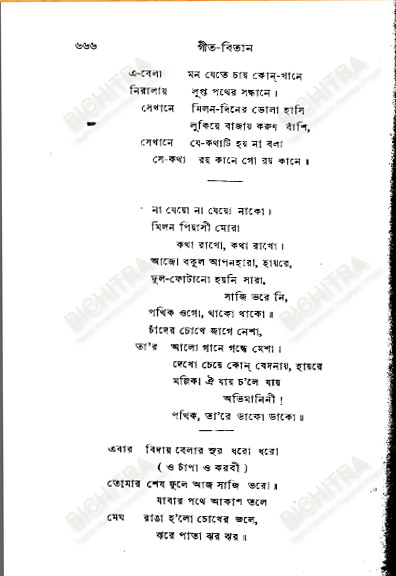 ৬৬৬ গীত-বিতান
এ-বেলা মন যেতে চায় কোন্‌-খানে
নিরালায় লুপ্ত পথের সন্ধানে।
সেখানে মিলন-দিনের ভোলা হাসি
লুকিয়ে বাজায় করুণ বাঁশি,
সেখানে যে-কথাটি হয় না বলা
সে-কথা রয় কানে গো রয় কানে॥
না যেয়ো না যেয়ো নাকো।
মিলন পিয়াসী মোরা
কথা রাখো, কথা রাখো।
আজো বকুল আপনহারা, হায়রে,
ফুল-ফোটানো হয়নি সারা,
সাজি ভরে নি,
পথিক ওগো, থাকো থাকো॥
চাঁদের চোখে জাগে নেশা,
তা'র আলো গানে গন্ধে মেশা।
দেখো চেয়ে কোন্‌ বেদনায়, হায়রে
মল্লিকা ঐ যায় চ'লে যায়
অভিমানিনী!
পথিক, তা'রে ডাকো ডাকো॥
এবার বিদায় বেলার সুর ধরো ধরো
( ও চাঁপা ও করবী )
তোমার শেষ ফুলে আজ সাজি ভরো॥
যাবার পথে আকাশ তলে
মেঘ রাঙা হ'লো চোখের জলে,
ঝরে পাতা ঝর ঝর॥
BICHITRA
BICHITRA
BICHITRA
BICHITRA
BICHITRA
BICHITRA